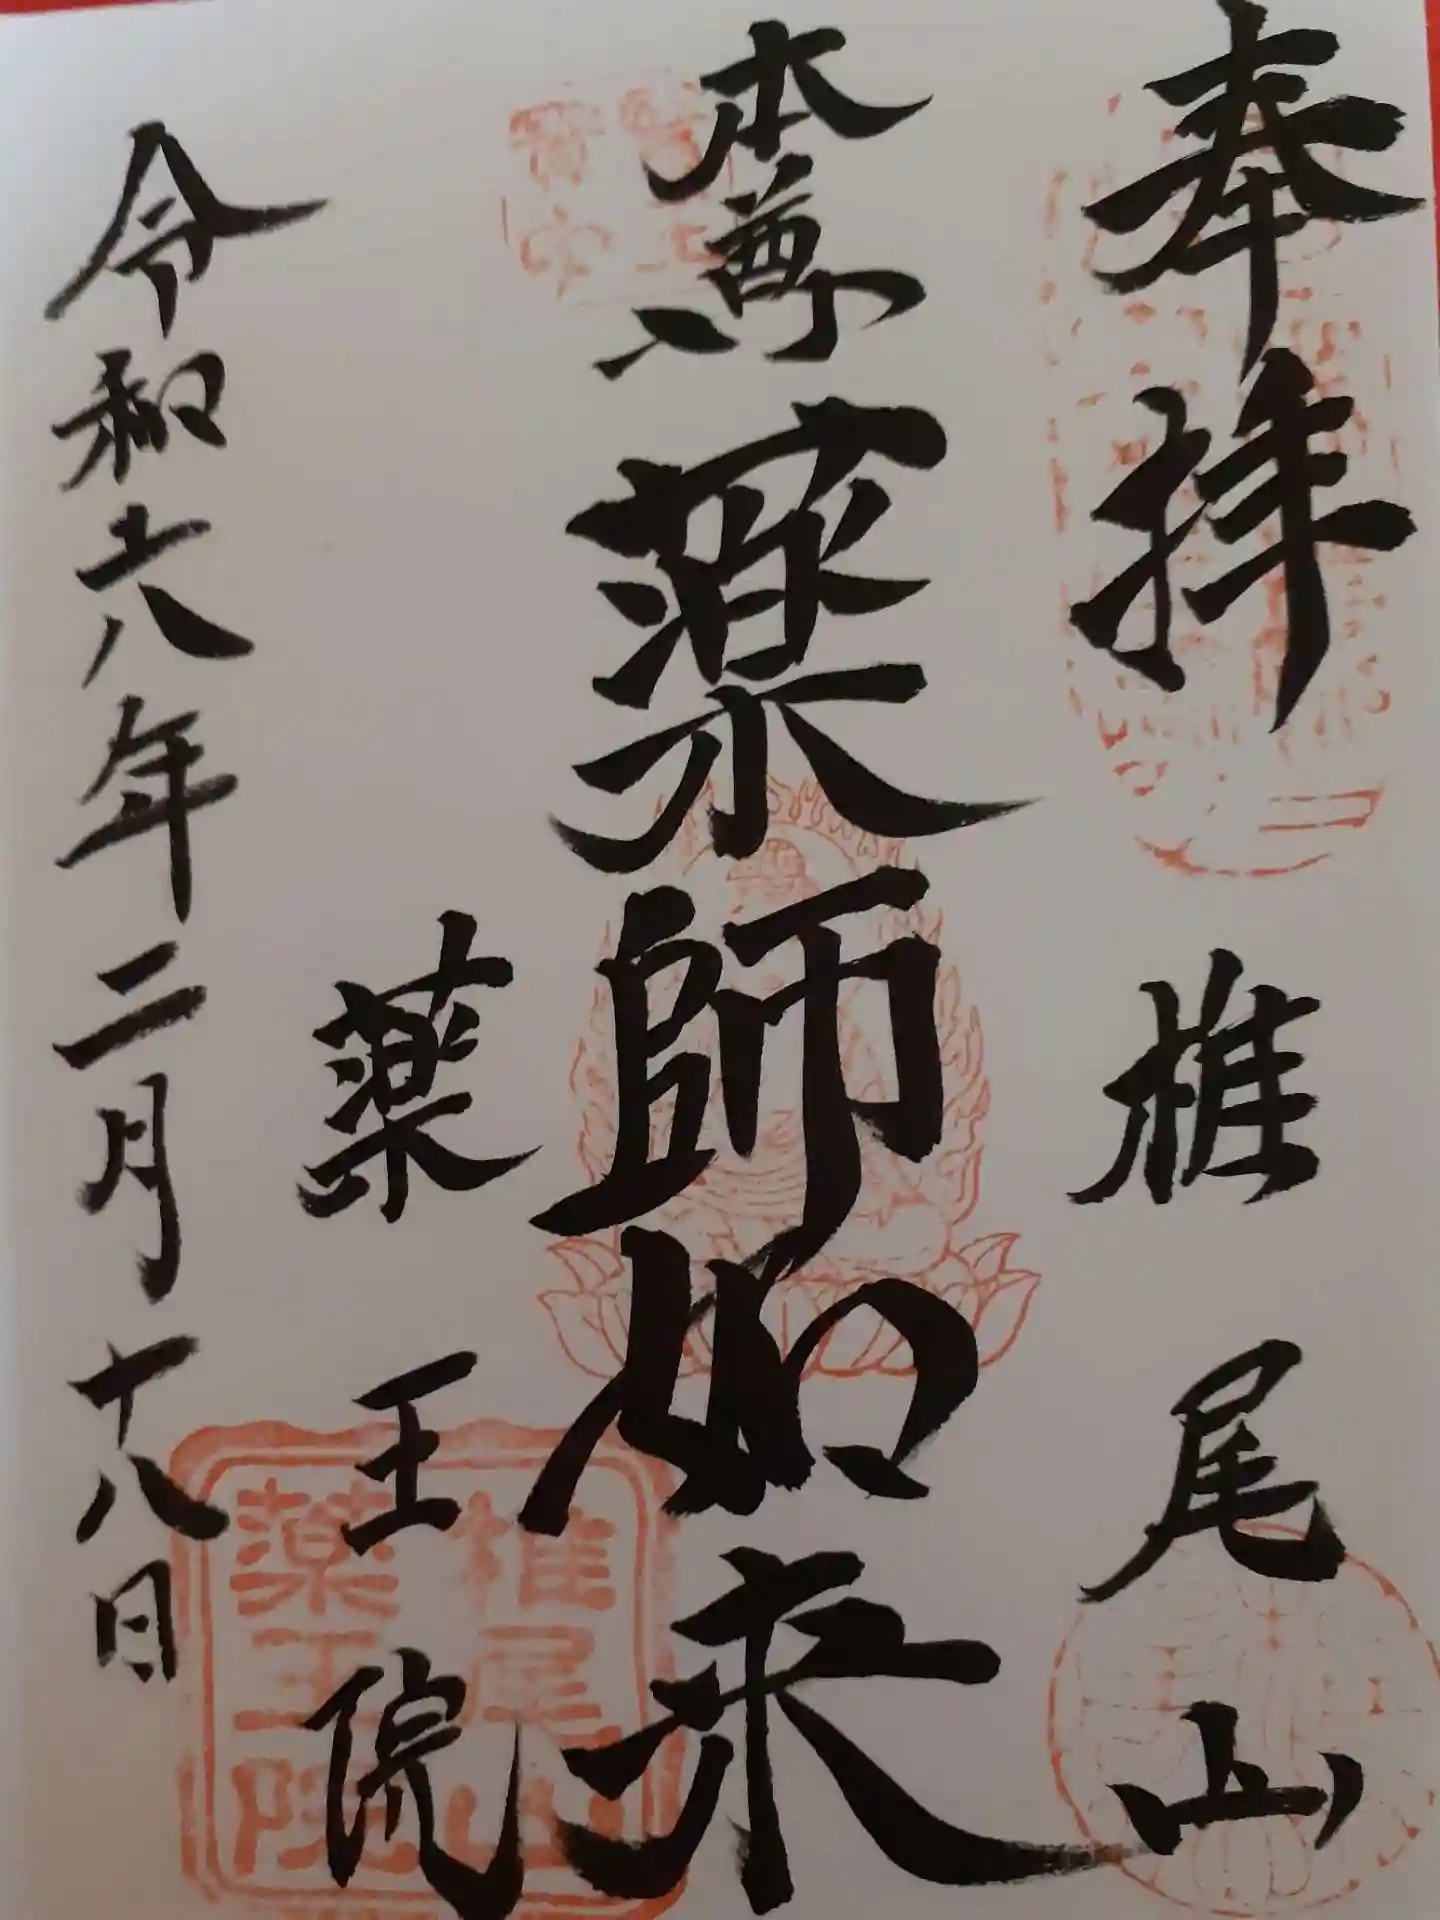 奉拝 椎尾山
本尊 薬師如来
薬王院
令和六年二月十八日
椎尾山
薬王院